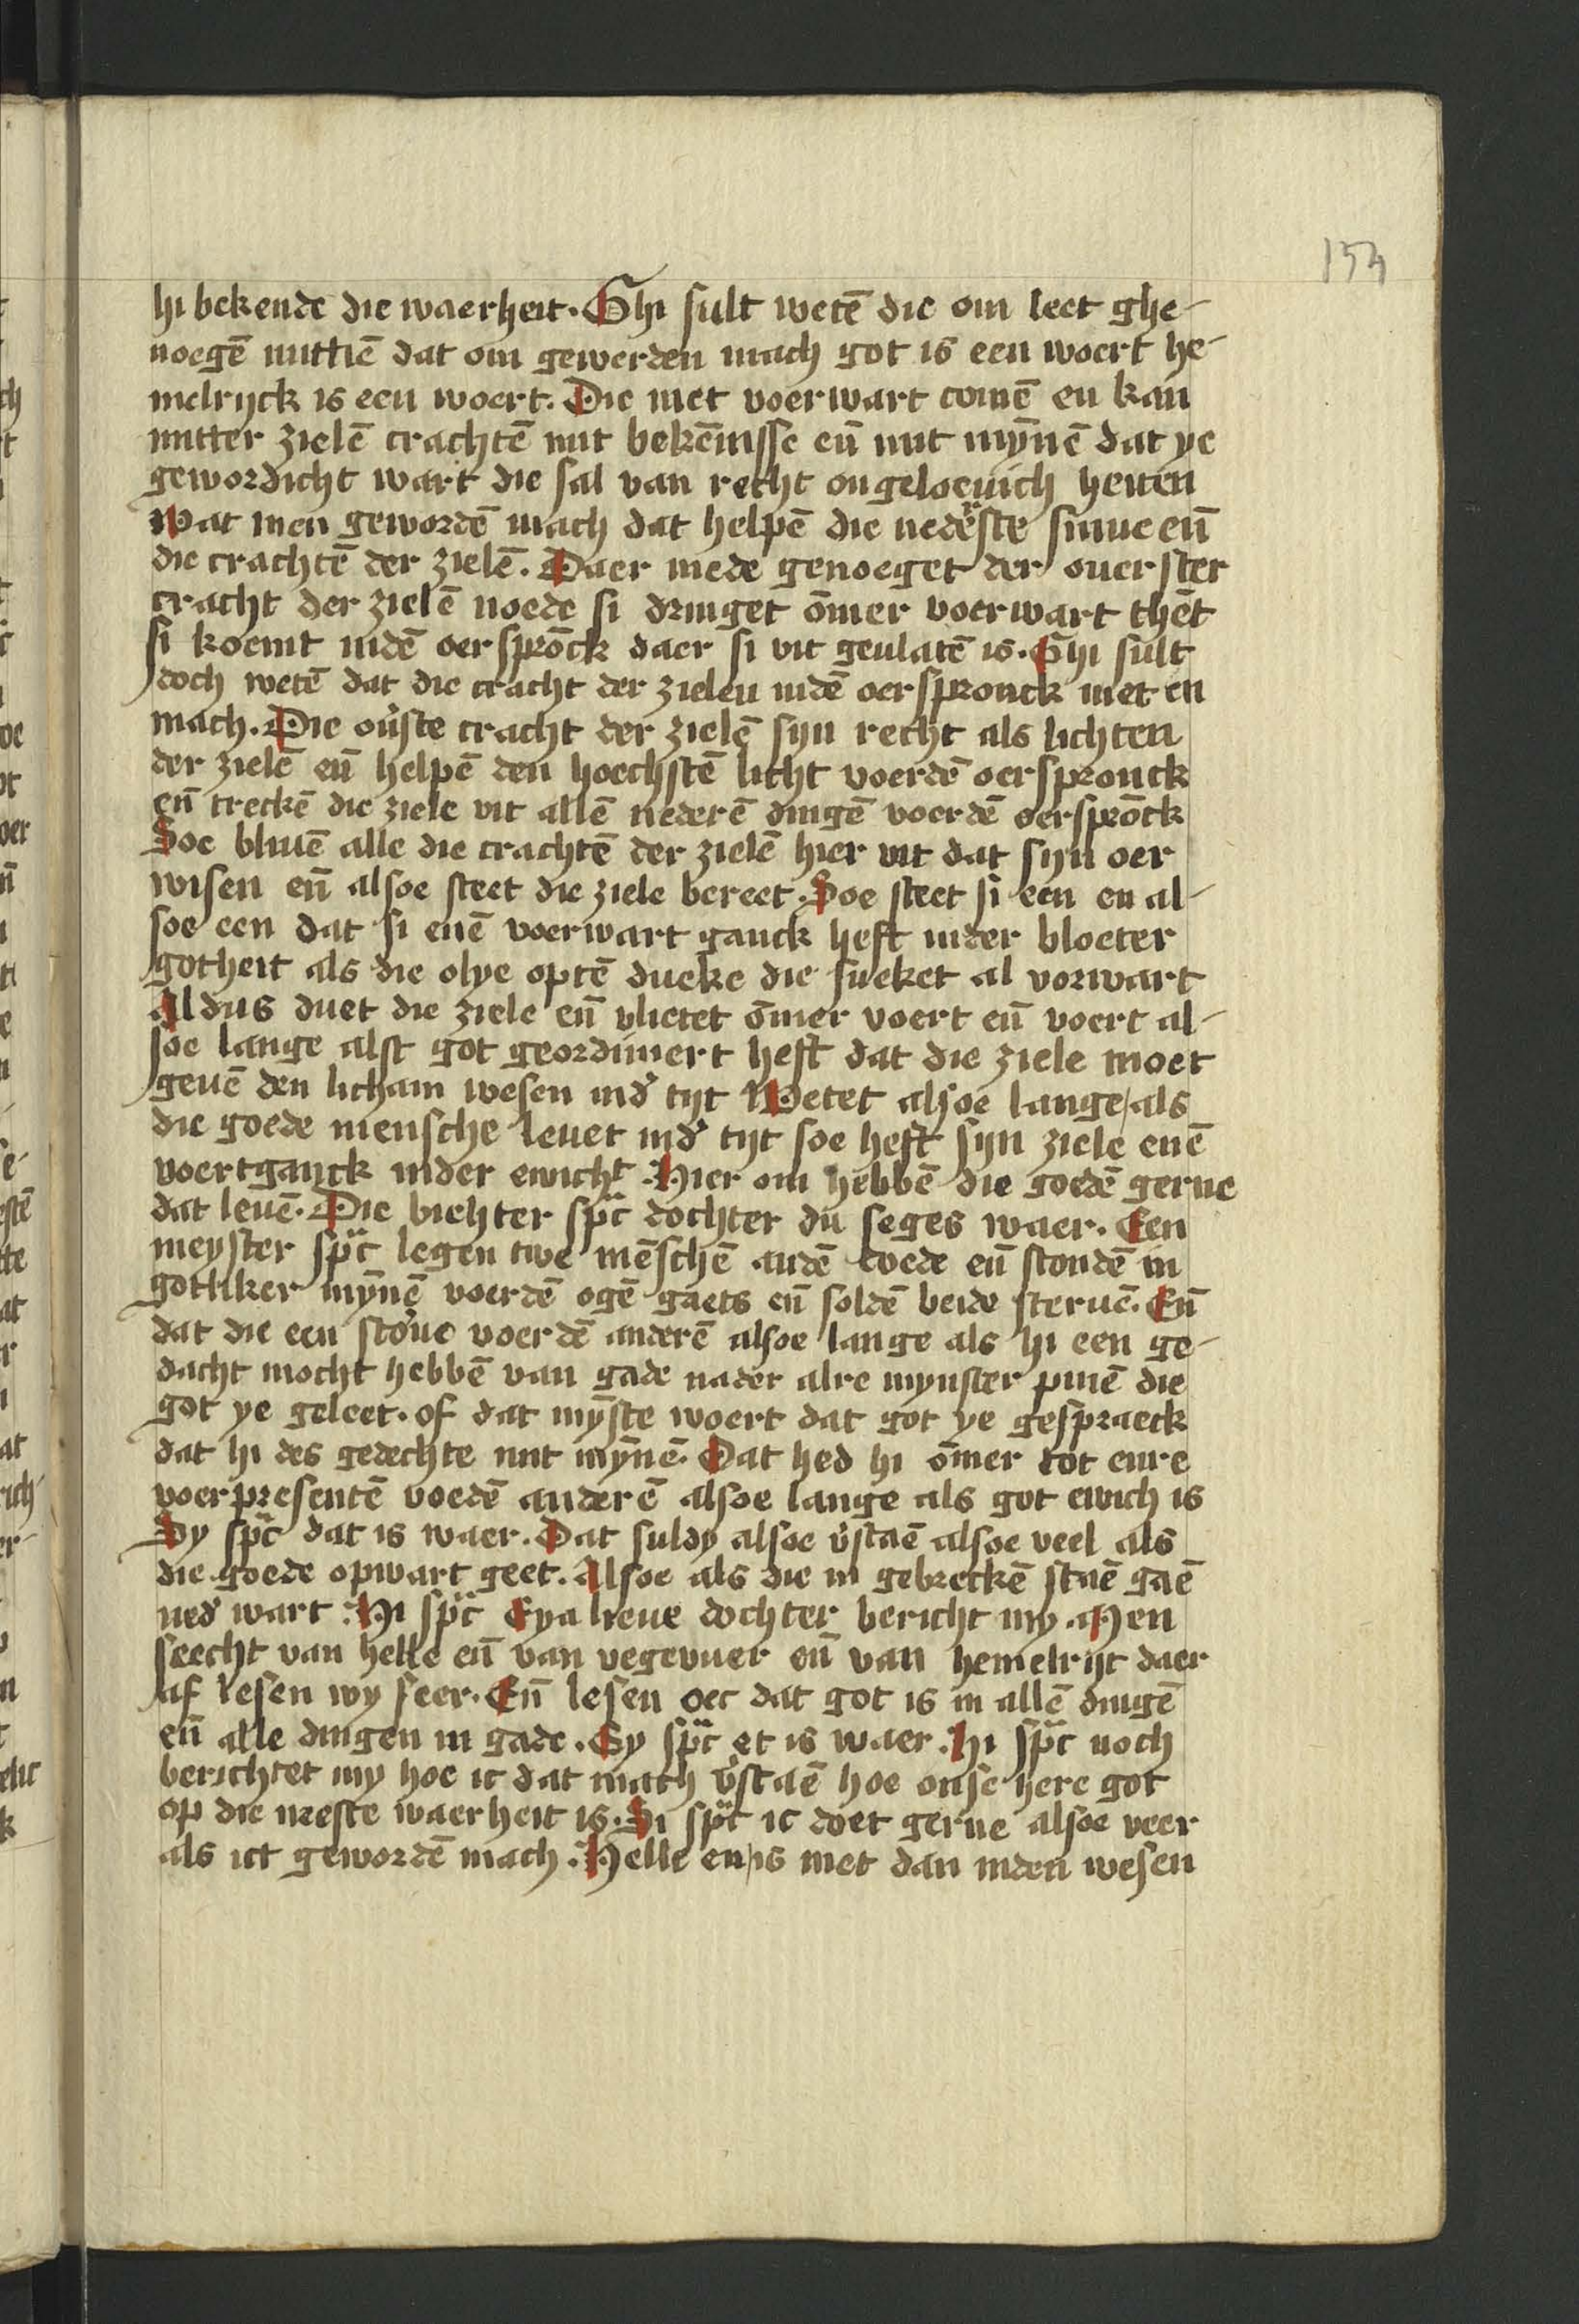 153
hi bekende die waerheit. Ghi sult wetē die om leet ghe-
noegē mittiē dat om gewerden mach got is een woert he-
melrijck is een woert. Die niet voerwart comē en kan
mitter zielē crachtē mit bekēnisse eñ mit mȳnē dat ye
gewordicht wart die sal van recht ongeloeuich heiten
Wat men gewordē mach dat helpē die nedēste sinne eñ
die crachtē der zielē. Daer mede genoeget der ouerster
cracht der zielē noede si dringet ōmer voerwart thēt
si koemt indē oersprōck daer si vit geulatē is. Ghi sult
doch wetē dat die cracht der zielen indē oerspronck niet en
mach. Die ou̓ste cracht der zielē sijn recht als lichten
der zielē eñ helpē den hoechstē licht voerdē oerspronck
eñ treckē die ziele vit allē nederē dingē voerdē oersprōck
Soe bliuē alle die crachtē der zielē hier vit dat sijn oer
wisen eñ alsoe steet die ziele bereet. Soe steet si een en al-
soe een dat si enē voerwart ganck heft inder bloeter
gotheit als die olye optē dueke die sueket al vorwart
Aldus duet die ziele eñ vlietet ōmer voert eñ voert al-
soe lange alst got geordiniert heft dat die ziele moet
geuē den licham wesen ind̓ tijt Wetet alsoe lange als
die goede mensche leuet ind̓ tijt soe heft sijn ziele enē
voertganck inder ewicht. Hier om hebbē die goedē gerne
dat leuē. Die bichter sp̄c dochter du seges waer. Een
meyster sp̄c legen twe mēschē andē doede eñ stondē in
gotliker mȳnē voerdē ogē gaets eñ soldē beide steruē. Eñ
dat die een sto̓ue voerdē anderē alsoe lange als hi een ge-
dacht mocht hebbē van gade nader alre mynster pinē die
got ye geleet. of dat mȳste woert dat got ye gespraeck
dat hi des gedechte mit mȳnē. Dat hed hi ōmer tot eure
voerpresentē voedē anderē alsoe lange als got ewich is
Sy sp̄c dat is waer. Dat suldy alsoe v̓staē alsoe veel als
die goede opwart geet. Alsoe als die in gebreckē staē gaē
ned̓ wart. Hi sp̄c Eya lieue dochter bericht my. Men
seecht van helle eñ van vegevuer eñ van hemelrijt daer
af lesen wy seer. Eñ lesen oec dat got is in allē dingē
eñ alle dingen in gade. Sy sp̄c et is waer. Hi sp̄c noch
berichtet my hoe ic dat mach v̓staē hoe onse here got
op die neeste waerheit is. Si sp̄c ic doet gerne alsoe veer
als ict gewordē mach. Helle en is niet dan inden wesen